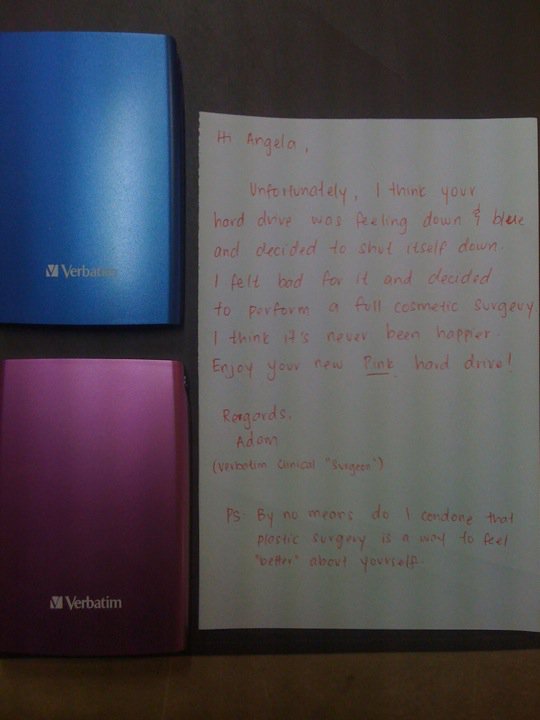 Verbatim
Hi Angela,
Unfortunately, I think your
hard drive was feeling down & blue
and decided to shut itself down.
I felt bad for it and decided
to perform a full cosmetic surgery
I think it's never been happier.
Enjoy your new Pink hard drive!
Regards,
Adam
(Verbatim Clinical "Surgeon")
PS. By no means do I condone that
plastic surgery is a way to feel
"better" about yourself.
Verbatim